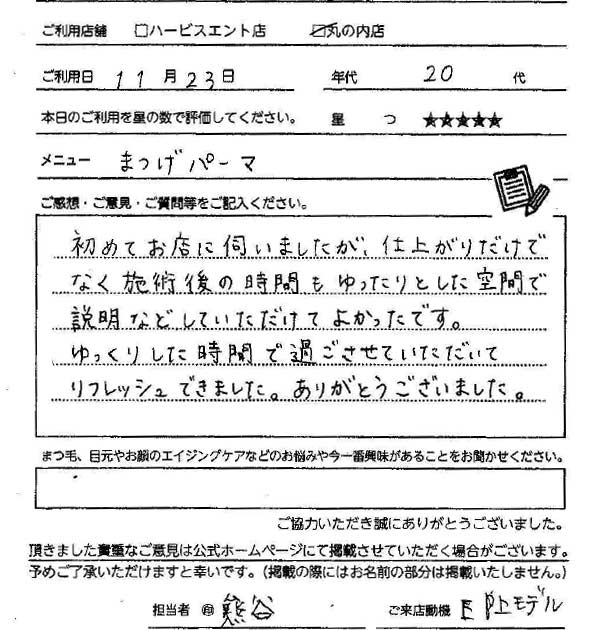 ご利用店舗 □ハービスエント店 ☑丸の内店
ご利用日 11月23日 年代 20代
本日のご利用を星の数で評価してください。 星 つ ★★★★★
メニュー まつげパーマ
ご感想・ご意見・ご質問等をご記入ください。
初めてお店に伺いましたが、仕上がりだけで
なく施術後の時間もゆったりとした空間で
説明などしていただけてよかったです。
ゆっくりした時間で過ごさせていただいて
リフレッシュできました。ありがとうございました。
まつ毛、目元やお顔のエイジングケアなどのお悩みや今一番興味があることをお聞かせください。
ご協力いただき誠にありがとうございました。
頂きました貴重なご意見は公式ホームページにて掲載させていただく場合がございます。
予めご了承いただけますと幸いです。（掲載の際にはお名前の部分は掲載いたしません。）
担当者 ㊞ 熊谷 ご来店動機 モデル